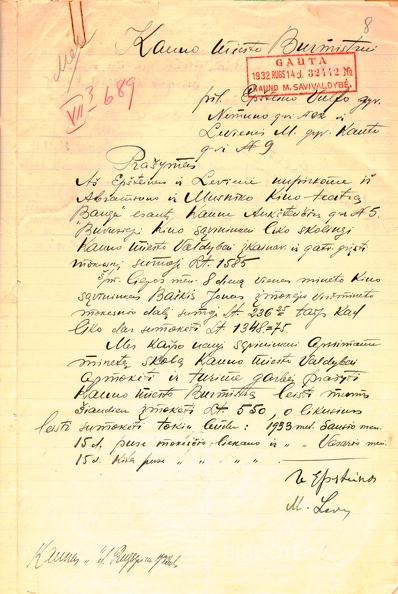 8
Kauno Miesto Burmistrui
GAUTA
1932 RUGS 14 d. 32442 №
KAUNO M. SAVIVALDYBĖ.
VII 3 689
pil. Epšteino gyv.
Nemuno g-vė ir
Levienės M. gyv. Kanto
g-vė № 9
Prašymas
Aš Epšteinas ir Levienė nupirkome iš
Abramsono ir Kino-teatrą
"Banga" esantį, Kaune Aukštaičių g-vė № 5.
Buvusieji Kino savininkai liko skolingi
Kauno Miesto Valdybai ir
mokesnį sumoje Lt. 1585
š/m. Liepos mėn. 8 dieną vienas minėto Kino
savininkas Jonas
mokesnio dalį sumoje Lt. 236 25 taip kad
liko dar sumokėti Lt 1348=75.
Mes kaipo nauji savininkai apsiimame
minėtą skolą Kauno Miesto Valdybai
apmokėti ir turime garbės prašyti
Kauno Miesto Burmistrą leisti mums
šiandien įmokėti Lt 550, o likusius
leisti sumokėti tokiu būdu: 1933 met. Sausio mėn.
15 d. pusę ir " " Vasario mėn.
15 d. kitą pusę " " " " .
Epšteinas
M. Lev
Kaunas